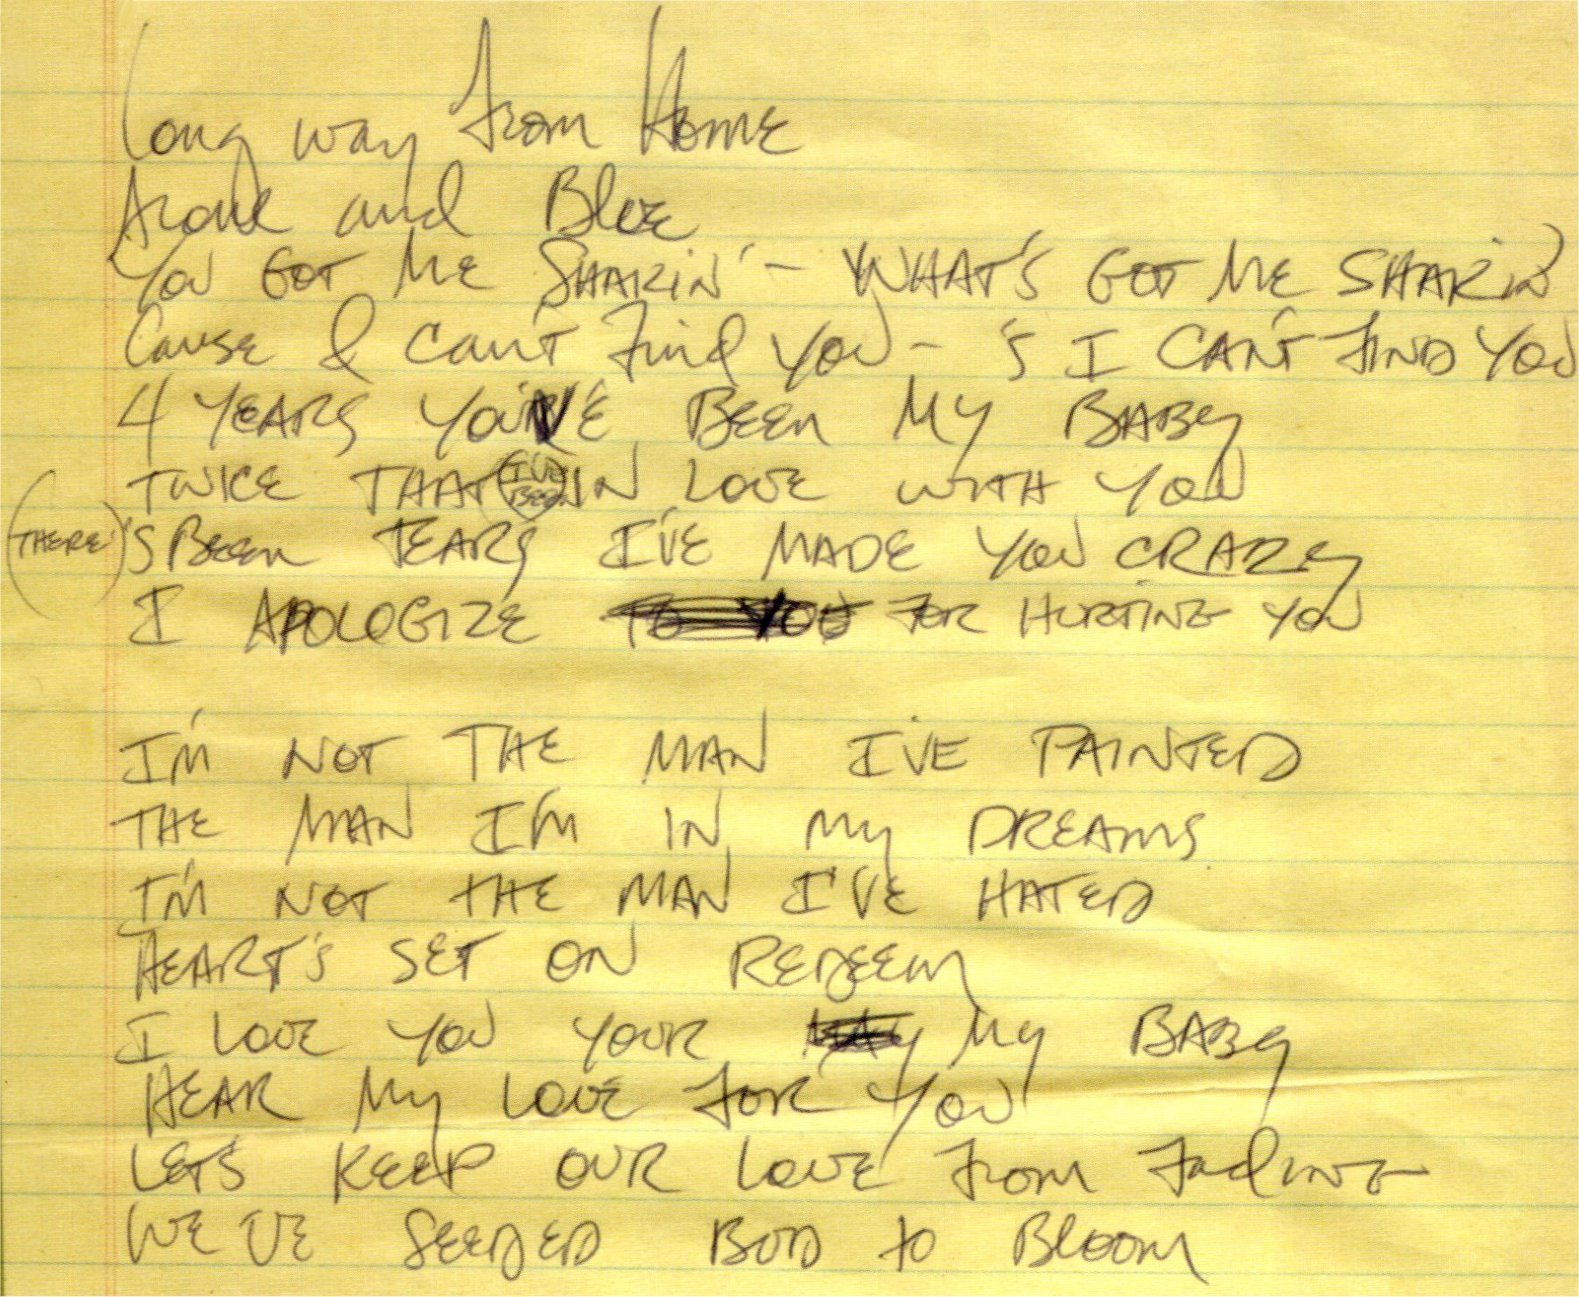 Long way from Home
Alone and Blue
You GOT ME SHAKIN' - WHAT'S GOT ME SHAKIN'
Cause I can't Find YOU - 'S I CAN'T FIND YOU
4 YEARS YOU'VE BEEN MY BABY
TWICE THAT (I'VE BEEN) IN LOVE WITH YOU
(THERE)'S BEEN TEARS I'VE MADE YOU CRAZY
I APOLOGIZE TO YOU FOR HURTING YOU
I'M NOT THE MAN I'VE PAINTED
THE MAN I'M IN MY DREAMS
I'M NOT THE MAN I'VE HATED
HEART'S SET ON REDEEM
I LOVE YOU YOUR MY BABY
HEAR MY LOVE FOR YOU
LET'S KEEP OUR LOVE FROM FadING
WE'VE SEEDED BUD to BLOOM